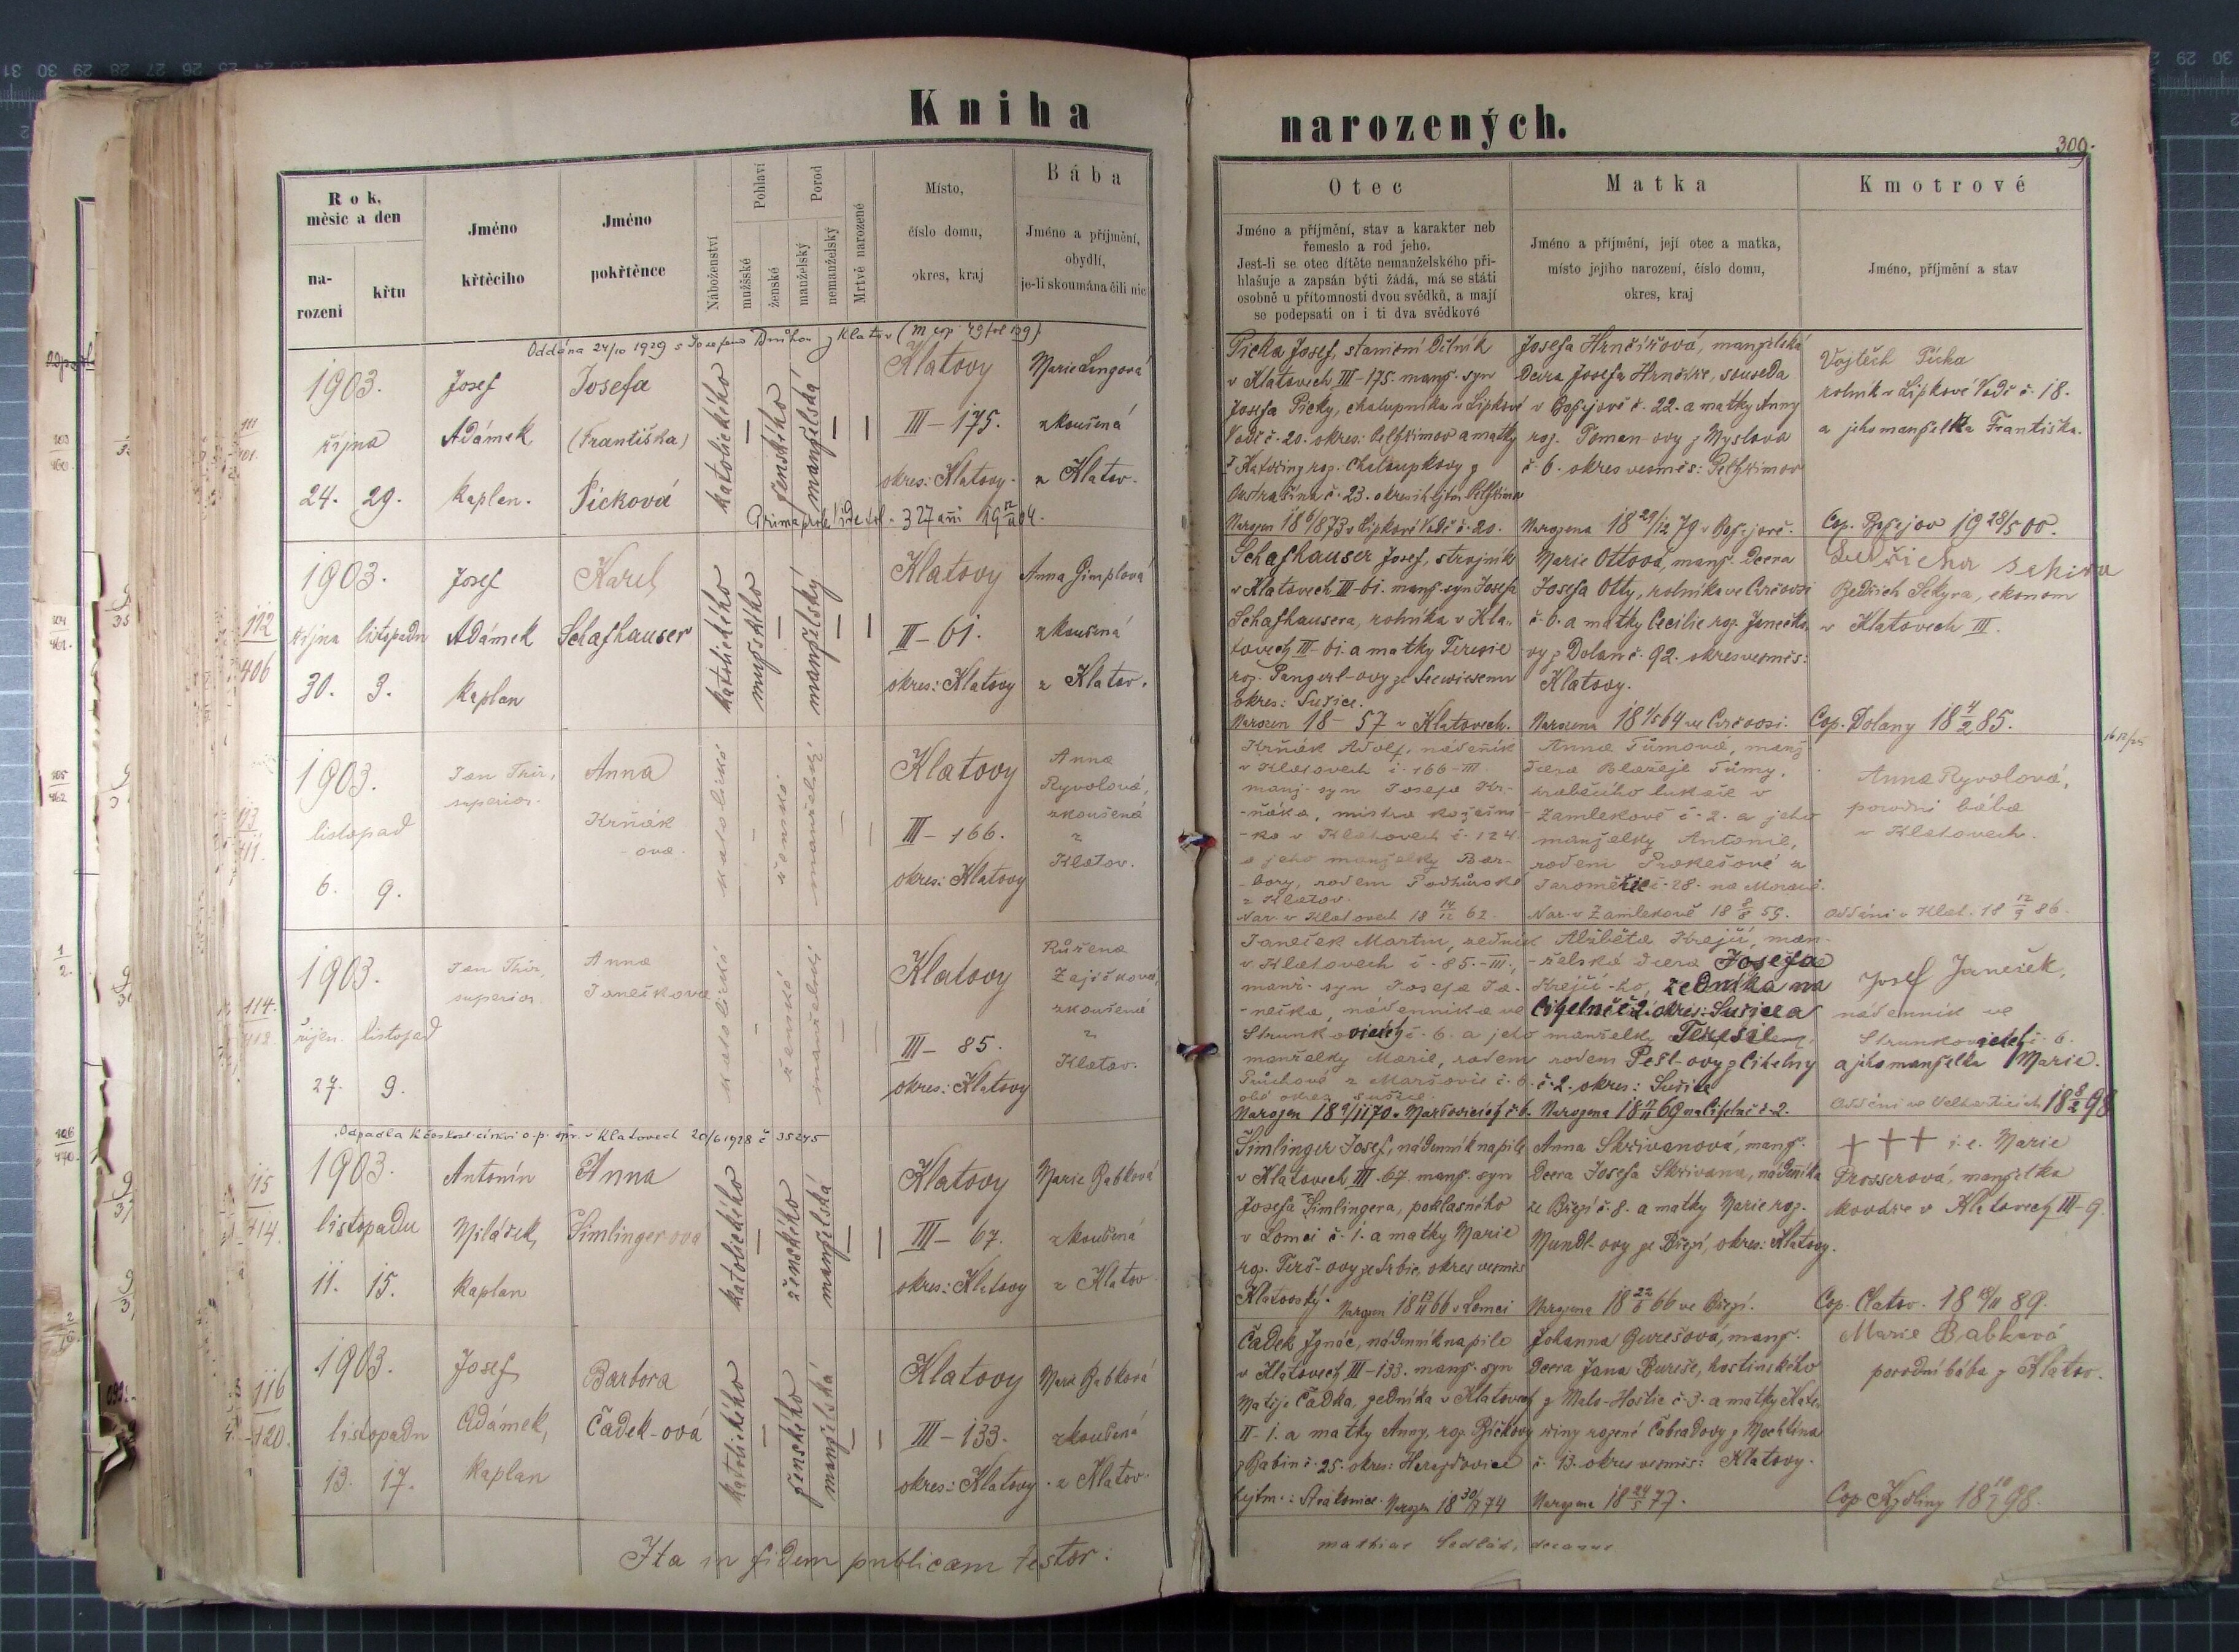 Kniha
narozených.
309.
Rok,
měsíc a den
na-
rození
křtu
Jméno
křtěcího
Jméno
pokřtěnce
Náboženství
Pohlaví
mužské
ženské
Porod
manželský
nemanželský
Mrtvě narozené
Místo,
číslo domu,
okres, kraj
Bába
Jméno a příjmění,
obydlí,
je-li skoumána čili nic
Otec
Jméno a příjmění, stav a karakter neb
řemeslo a rod jeho.
Jest-li se otec dítěte nemanželského při-
hlašuje a zapsán býti žádá, má se státi
osobně u přítomnosti dvou svědků, a mají
se podepsati on i ti dva svědkové
Matka
Jméno a příjmění, její otec a matka,
místo jejího narození, číslo domu,
okres, kraj
Kmotrové
Jméno, příjmění a stav
Oddána 24/10 1929 s Josefem z Klatov
1903.
října
24. 29.
Josef
Adámek,
kaplan.
Josefa
(Františka)
Picková
katolického
ženského
manželská
Klatovy
III - 175.
okres: Klatovy.
Marie Lingová
zkoušená
z Klatov.
Picka Josef, staniční dělník
v Klatovech III-175. manž. syn
Josefa Picky, chalupníka v Lipkové
Vodě č. 20. okres: Pelhřimov a matky
Kateřiny roz. Chaloupkovy z
č. 23. okres i hejtm. Pelhřimov
Narozen 18 6/8 73 v Lipkové Vodě č. 20.
Josefa Hrnčířová, manželská
dcera Josefa Hrnčíře, souseda
v Božejově č. 22. a matky Anny
roz. Toman-ovy z Myslova
č. 6. okres vesměs: Pelhřimov
Narozena 18 29/12 79 v Božejově.
Vojtěch Picka
rolník v Lipkové Vodě č. 18.
a jeho manželka Františka.
Cop. Božejov 19 28/5 00.
111
401.
1903.
října listopadu
30. 3.
Josef
Adámek
kaplan
Karel
Schafhauser
katolického
mužského
manželský
Klatovy
III - 61.
okres: Klatovy
Anna Gimplová
zkoušená
z Klatov.
Schafhauser Josef, strojník
v Klatovech III-61. manž. syn Josefa
Schafhausera, rolníka v Kla-
tovech III-61. a matky Terezie
roz. Pangerl-ovy ze Seewiesenu
okres: Sušice.
Narozen 18 - 57 v Klatovech.
Marie Ottová, manž. dcera
Josefa Otty, rolníka ve Výrově
č. 6. a matky Cecilie roz. Janečko-
vy z Dolan č. 92. okres vesměs:
Klatovy.
Bedřich Sekyra, ekonom
v Klatovech III.
Cop. Dolany 18 4/2 85.
112
406
1903.
listopad
6. 9.
Jan Thir,
superior.
Anna
Krňák
-ova.
katolické
ženské
manželský
Klatovy
III - 166.
okres: Klatovy
Anna
Ryvolová,
zkoušená
z
Klatov.
Krňák Adolf, nádeník
v Klatovech č. 166-III.
manž. syn Josefa Kr-
-ňáka, mistra kožešni-
-ka v Klatovech č. 124
a jeho manželky Bar-
-bory, rodem Podhůrské
z Klatov.
Nar. v Klatovech 18 14/12 62.
Anna Tůmová, manž.
dcera Blažeje Tůmy,
v
Zamlekově č. 2. a jeho
manželky Antonie,
rodem Prokešové z
Jaroměřic č. 28. na Moravě.
Nar. v Zamlekově 18 8/8 55.
Anna Ryvolová,
porodní bába
v Klatovech.
Oddáni v Klat. 18 12/9 86.
113
411.
1903.
říjen. listopad
27. 9.
Jan Thir,
superior
Anna
Janečkova
katolické
ženské
manželský
Klatovy
III - 85.
okres: Klatovy
Růžena
Zajíčková,
zkoušená
z
Klatov.
Janeček Martin, zedník
v Klatovech č. 85.-III.,
manž. syn Josefa Ja-
-nečka, nádenníka ve
Strunkovicích č. 6. a jeho
manželky Marie, rodem
z Maršovic č. 6.
obé okres Sušice.
Narozen 18 9/11 70 v Maršovicích č. 6.
Alžběta Krejčí, man-
-želská dcera Josefa
Krejčí-ho, zedníka na
Cihelně č. 2. okres: Sušice a
manželky Terezie
rodem Pešl-ovy z Cihelny
č. 2. okres: Sušice
Josef Janeček,
nádenník ve
Strunkovicích č. 6.
a jeho manželka Marie.
Oddáni ve Velharticích 18 8/2 98
114.
412.
Odpadla k českosl. církvi o.p. spr. v Klatovech 20/6 1928 č 35275
1903.
listopadu
11. 15.
Antonín
Miláček,
kaplan
Anna
Šimlingerova
katolického
ženského
manželská
Klatovy
III - 67.
okres: Klatovy
Marie Babková
zkoušená
z Klatov.
Šimlinger Josef, nádenník na pile
v Klatovech III-67. manž. syn
Josefa Šimlingera, poklasného
v Lomci č. 1. a matky Marie
roz. Terš-ovy ze Srbic, okres vesměs
Klatovský.
Narozen 18 13/11 66 v Lomci
Anna Skřivanová, manž.
dcera Josefa Skřivana, nádeníka
ze Březí č. 8. a matky Marie roz.
Mundl-ovy ze Březí, okres: Klatovy.
Narozena 18 22/6 66 ve Březí.
+++ i. e. Marie
Prosserová, manželka
kováře v Klatovech III-9.
Cop. Clatov. 18 18/11 89.
115
414.
1903.
listopadu
13. 17.
Josef
Adámek,
kaplan
Barbora
Čadek-ová
katolického
ženského
manželská
Klatovy
III - 133.
okres: Klatovy
Marie Babková
zkoušená
z Klatov.
Čadek Ignác, nádenník na pile
v Klatovech III-133. manž. syn
Matěje Čadka, zedníka v Klatovech
II-1. a matky Anny, roz. Bíčkovy
z Babin č. 25. okres: Horažďovice
hejtm.: Strakonice. Narozen 18 30/7 74
Johanna Burešová, manž.
dcera Jana Bureše, hostinského
z Malo-Hoštic č. 3. a matky Kate-
řiny rozené Čabradovy z Mochtína
č. 13. okres vesměs: Klatovy.
Narozena 18 24/5 77.
Marie Babková
porodní bába z Klatov.
Cop. Kydliny 18 10/7 98.
116
420.
Ita in fidem publicam testor:
decanus